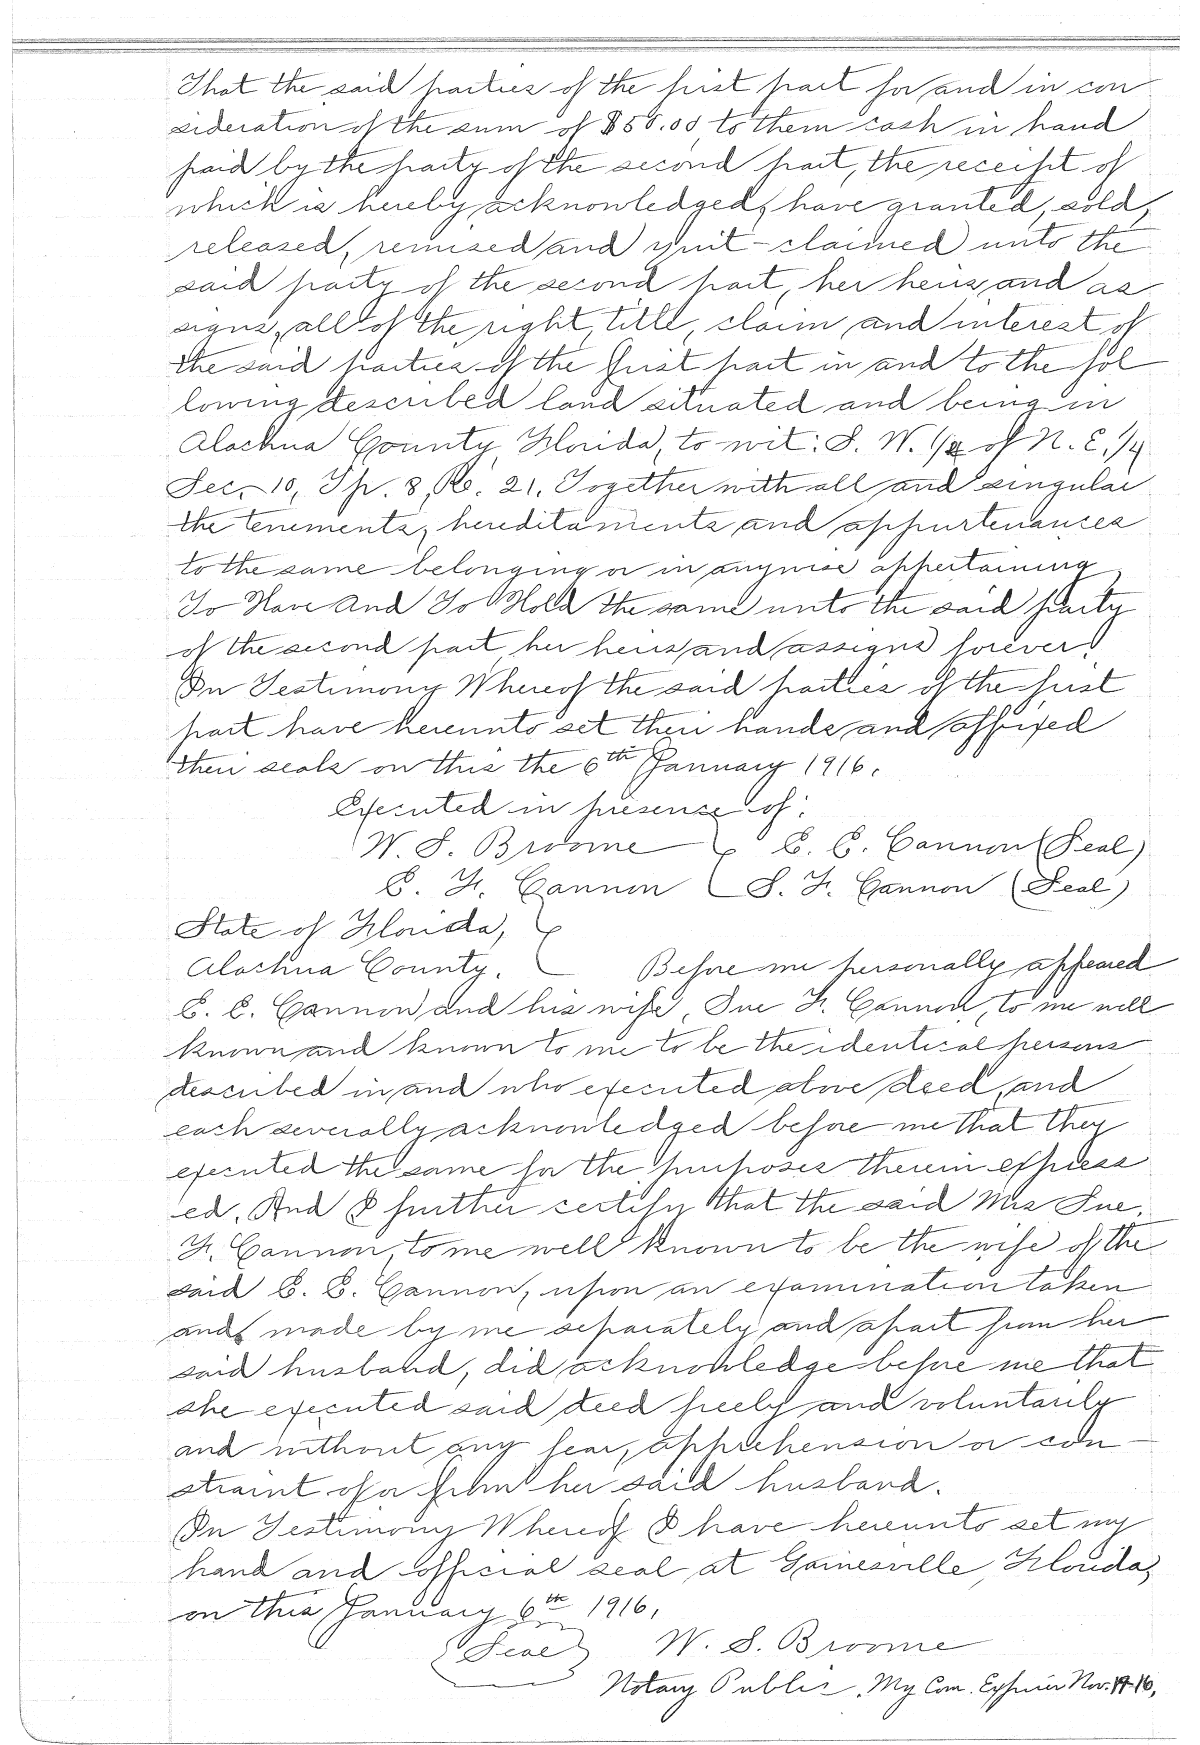 That the said parties of the first part for and in con
sideration of the sum of $50.00 to them cash in hand
paid by the party of the second part, the receipt of
which is hereby acknowledged, have granted, sold,
released, remised and quit-claimed unto the
said party of the second part, her heirs, and as
signs, all of the right, title, claim and interest of
the said parties of the first part in and to the fol
lowing described land situated and being in
Alachua County, Florida, to wit: S. W. 1/4 of N. E. 1/4
Sec. 10, Tp. 8, R. 21. Together with all and singular
the tenements, hereditaments and appurtenances
to the same belonging or in anywise appertaining,
To Have And To Hold the same unto the said party
of the second part, her heirs and assigns forever.
In Testimony Whereof the said parties of the first
part have hereunto set their hands and affixed
their seals on this the 6th January 1916.
Executed in presence of:
W. S. Broome E. E. Cannon (Seal)
E. F. Cannon S. F. Cannon (Seal)
State of Florida,
Alachua County. Before me personally appeared
E. E. Cannon and his wife, Sue F. Cannon, to me well
known and known to me to be the identical persons
described in, and who executed above deed, and
each severally acknowledged before me that they
executed the same for the purposes therein express
ed. And I further certify that the said Mrs Sue.
F. Cannon, to me well known to be the wife of the
said E. E. Cannon, upon an examination taken
and made by me separately and apart from her
said husband, did acknowledge before me that
she executed said deed freely and voluntarily
and without any fear, apprehension or con-
straint of or from her said husband.
In Testimony Whereof I have hereunto set my
hand and official seal at Gainesville, Florida,
on this January 6th 1916,
(Seal) W. S. Broome
Notary Public. My Com. Expires Nov.